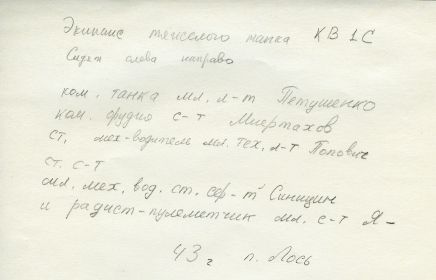 Экипаж тяжелого танка КВ 1С
Сидят слева направо
ком. танка мл. л-т Петушенко
ком. орудия с-т Миертахов
ст. мех-водитель мл. тех. л-т Попович
ст. с-т
мл. мех. вод. ст. сер-т Синицин
и радист-пулеметчик мл. с-т Я-
43 г п. Лось